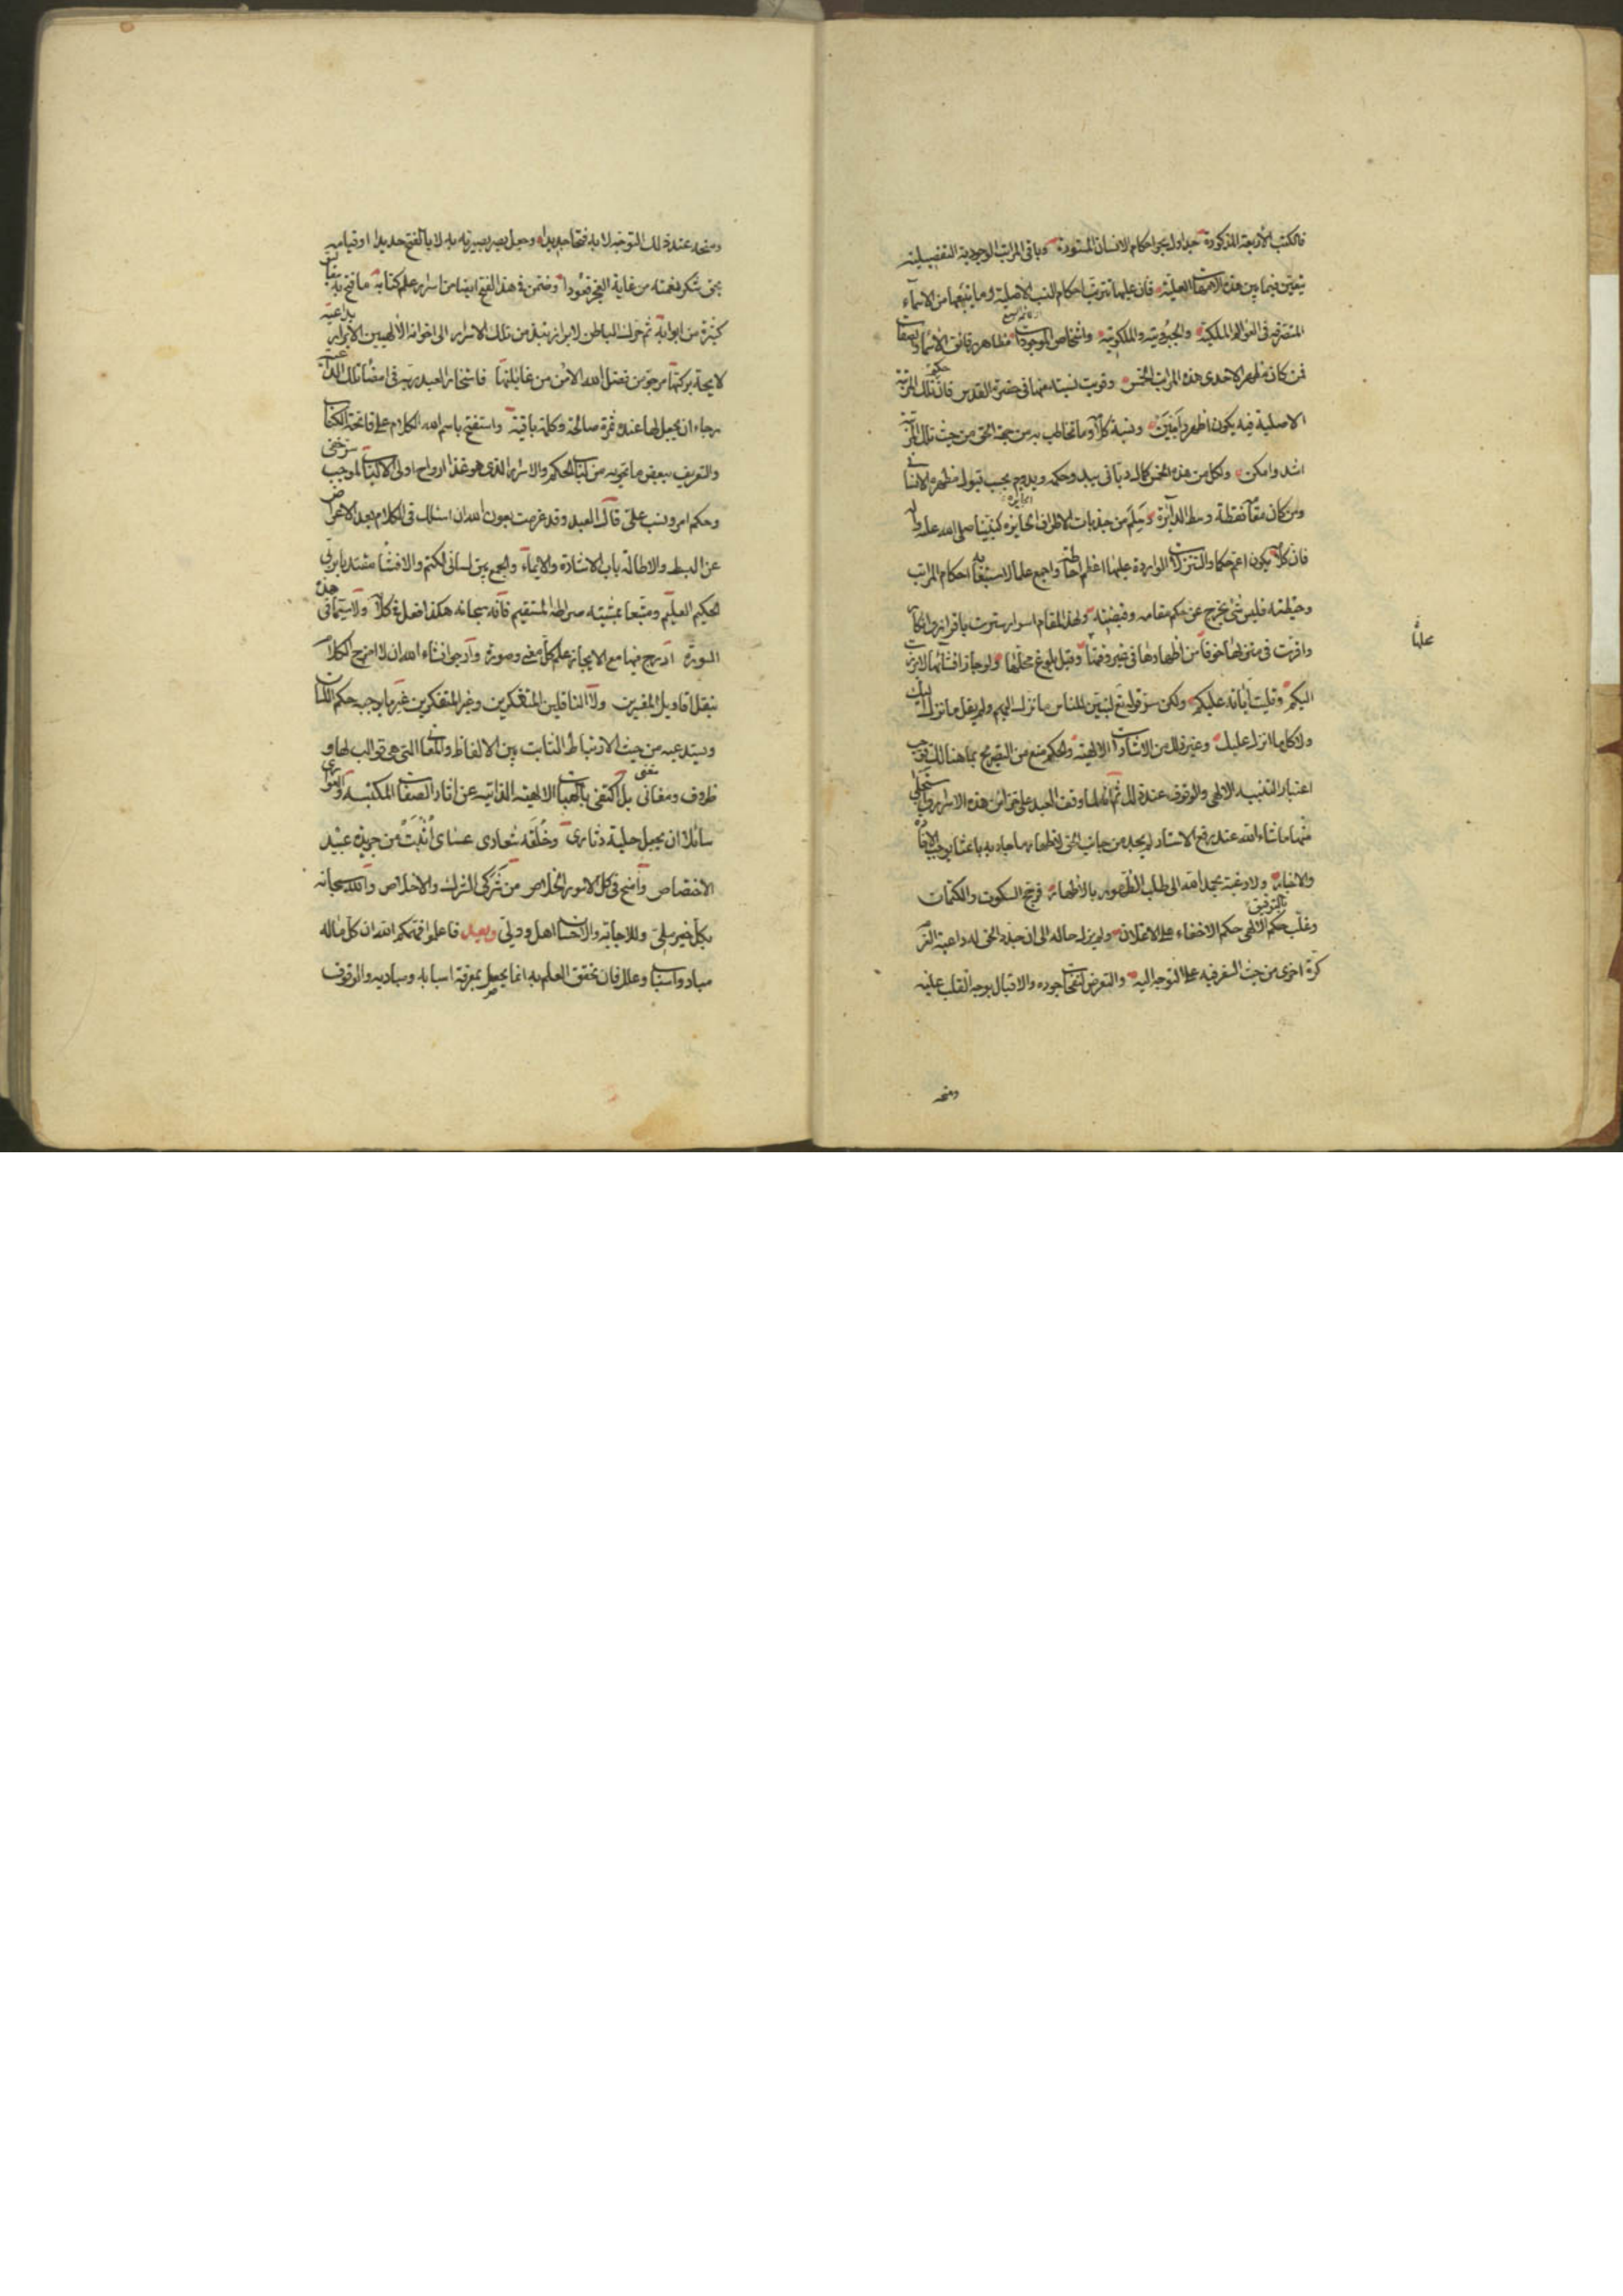 فالكتب الأربعة المذكورة جداول بحر احكام الانسان المستورة وباقى المراتب الوجودية التفصيلية
يتعين فيما بين هذه الامهات العلية فان عليها ترتب احكام النسب الاصلية وما يتبعها من الاسماء
المتصرفه فى العوالم الملكية والجبروتية والملكوتية واشخاص الموجودات مظاهر رقائق الاسماء والصفات
فمن كان مظهرا لاحدى هذه المراتب الخمس وقويت نسبته منها فى حضرة القدس فان حكم تلك المرتبة
الاصلية فيه يكون اظهر وابين ونسبة كلامه وما تخاطب به من جهة الحق من حيث تلك المرتبة
اشد وامكن ولكل من هذه الخمس كمال ربانى يبدو وحكمه ويدوم بحسب قبول مظهره الانسانى
ومن كان مقامه نقطة وسط الدائرة وسلم من جذبات الاطراف الجايزه كنبينا صلى الله عليه واله
فان كلامه يكون اعم حكما والتنزلات الواردة عليها اعظم احاطة واجمع علما لاستيعابه احكام المراتب
وحيطته فليس شئ يخرج عن حكم مقامه وقبضته ولهذا المقام اسرار سترت باقرار وانكار
واقرت فى منزلها خوفا من اظهارها فى غير وقتها وقبل بلوغ محلها ولو جاز افشائها لابرزت
اليكم وتليت آياته عليكم ولكن سر قوله تع لتبين للناس ما نزل اليهم ولم يقل ما نزل اليك
ولا كل ما انزل عليك وغير ذلك من الاشارات الالهية والحكم منع من التصريح بما هنالك فوجب
اعتبار التنبيه الالهى والوقوف عند ذلك ثم انه لما وقف العبد على خزائن هذه الاسرار واستجلى
منها ما شاء الله عند رفع الاستار لم يجد من جانب الحق لاظهار ما جاد به باعثا يوجب الافادة
والاخبار ولا رغبة بحمد الله الى طلب الظهور بالاظهار فرجح السكوت والكتمان
وغلب بالتوفيق حكم الالهى حكم الاخفاء على الاعلان ولم يزل حاله الى ان جدد الحق له داعية العزم
كرة اخرى من حيث السفر فيه على التوجه اليه والتعرض لنفحات جوده والاقبال بوجه القلب عليه
ومنحه
علمانا
ومنحه عند ذلك التوجه لا به فتحا جديدا وجعل بصر بصيرته به لا بالفتح حديدا اوقيامه
بحق شكر نعمته من غاية العجز قعودا وضمن فى هذا الفتح ايضا من اسرار علم كتابه ما فتح به
كثيرة من ابوابه ثم حرك الباطن لابراز نبذ من تلك الاسرار الى اخوانه الالهيين الابرار بداعية
لايحة بركتها مرجو من فضل الله الامن من غايلتها فاستخار العبد ربه فى امضاء تلك الداعية
رجاء ان يجعل لها عنده ثمرة صالحة وكلمة باقية واستفتح باسم الله الكلام على فاتحة الكتاب
والتعريف ببعض ما تحويه من لباب الحكم والاسرار الذى هو غذا ارواح اولى الالباب لموجب سر خفى
وحكم امر ونسب على قال العبد وقد عزمت بعون الله ان اسلك فى الكلام بعد الاعراض
عن البسط والاطالة باب الاشارة والايماء والجمع بين لسانى الكتم والافشاء مقتديا بربى
الحكيم العليم ومتبعا بمشيته صراطه المستقيم فانه سبحانه هكذا فعل فى كلامه ولا سيما فى هذه
السورة ادرج فيها مع الايجاز علم كل معنى وصورة وارجو ان شاء الله ان لا امزج الكلام
بنقل اقاويل المفسرين ولا الناقلين المتفكرين وغير المتفكرين غير ما يوجبه حكم اللسان
ويستدعيه من حيث الارتباط الثابت بين الالفاظ والمعانى التى هى قوالب لها و
ظروف ومغانى بل اكتفى بالهبات الالهية الذاتيه عن اثار الصفات المكتسبه والعوارى
سائلا ان يجعل حلية دثارى وخلقه شعارى عساى أثبت من جريدة عبيد
الاختصاص وامنح فى كل الامور الخلاص من شركى الشرك والاخلاص والله سبحانه
بكل خير ملى وللاجابة والاحسان اهل وولى وبعد فاعلموا فهمكم الله ان كل ما له
مباد واسباب وعلل فان تحقق العلم به انما يحصل بمعرفة اسبابه ومباديه والوقوف